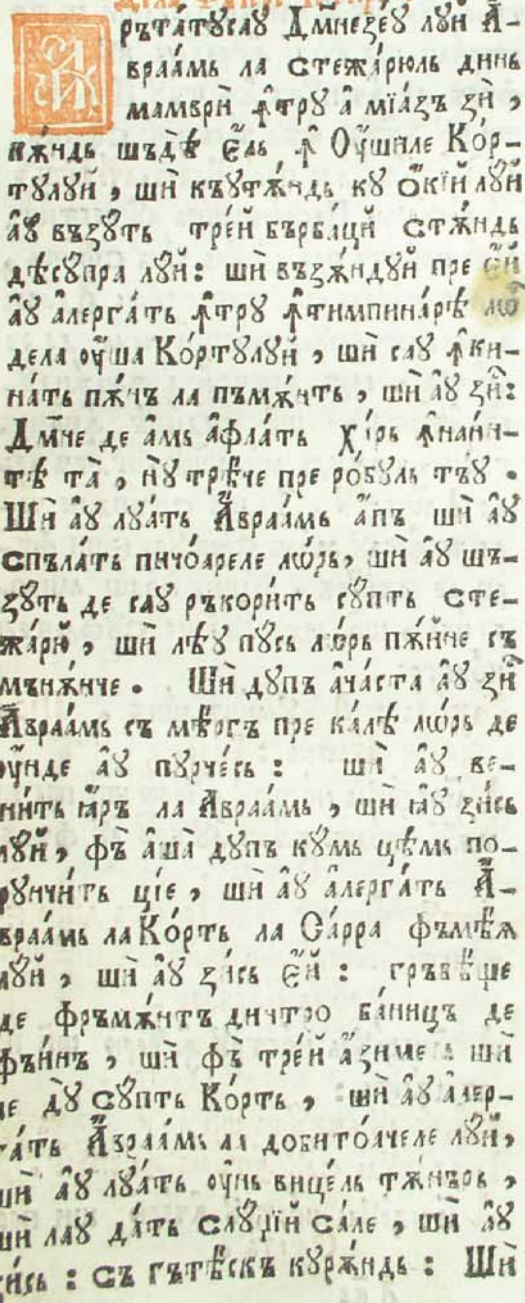 Арътáтусау Дм҃незеу луй А-
враáмь ла стежáрюль динь
мамври ꙟтру а мїáзъ зи,
кѫндь шъдѣ ель ꙟ оушиле Кор-
тулуй, ши къутѫндь ку окїй луй
ау възуть трей бърбаци стѫндь
дѣсупра луй: ши възѫндуй пре ей
ау алергáть ꙟтру ꙟтимпинáрѣ лѡ
дела оуша Кортулуй, ши сау ꙟки-
нáть пѫнъ ла пъмѫнть, ши ау зи:
Дм҃не де амь афлáть хáрь ꙟнаин-
тѣ та, ну трѣче пре робуль тъу.
Ши ау луáть Авраáмь апъ ши ау
спълáть пичоáреле лѡрь, ши ау шъ-
зуть де сау ръкорить супть сте-
жáрю, ши лѣу пусь лѡрь пѫйне съ
мънѫнче. Ши дупъ ачáста ау зи
Авраáмь съ мѣргъ пре кáлѣ лѡрь де
оунде ау пурчéсь: ши ау ве-
нить ꙗръ ла Авраáмь, ши ꙗу зись
луй, фъ аша дупъ кумь цѣмь по-
рунчить цїе, ши ау алергáть А-
враáмь ла Корть ла Сáрра фъмѣꙗ
луй, ши ау зись ей: гръбѣще
де фръмѫнтъ динтро бáницъ де
фъинъ, ши фъ трей áзиме: ши
ле ду супть Корть, ши ау алер-
гáть Авраáмь ла добитоачеле луй,
ши ау луáть оунь вицéль тѫнърь,
ши лау дáть слуӂїй сáле, ши ау
зись: съ гътѣскъ курѫндь: Ши